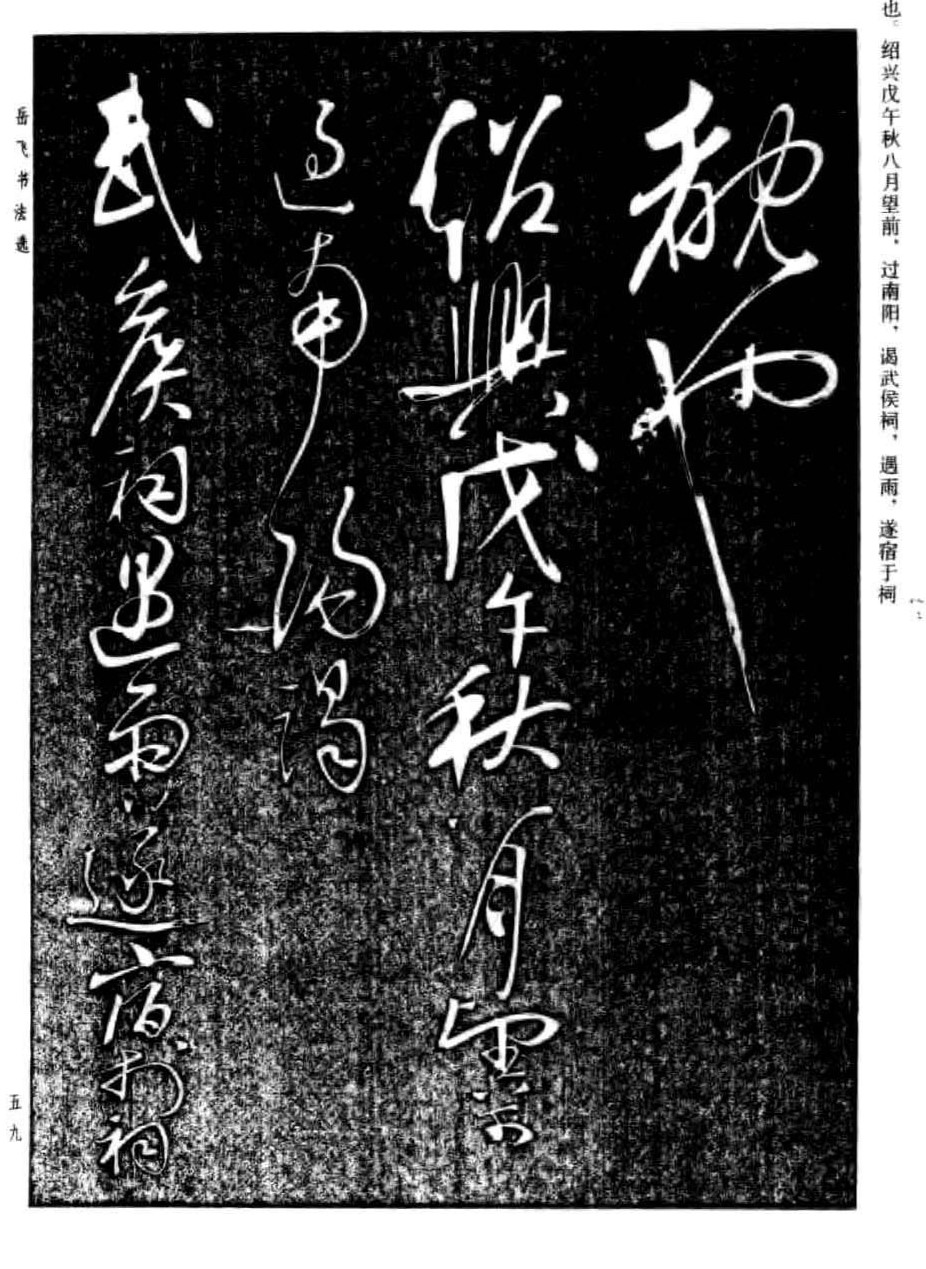 也。绍兴戊午秋八月望前，过南阳，谒武侯祠，遇雨，遂宿于祠
覩也
紹興戊午秋八月望前
過南陽謁
武侯祠遇雨遂宿於祠
岳飞书法选
五九